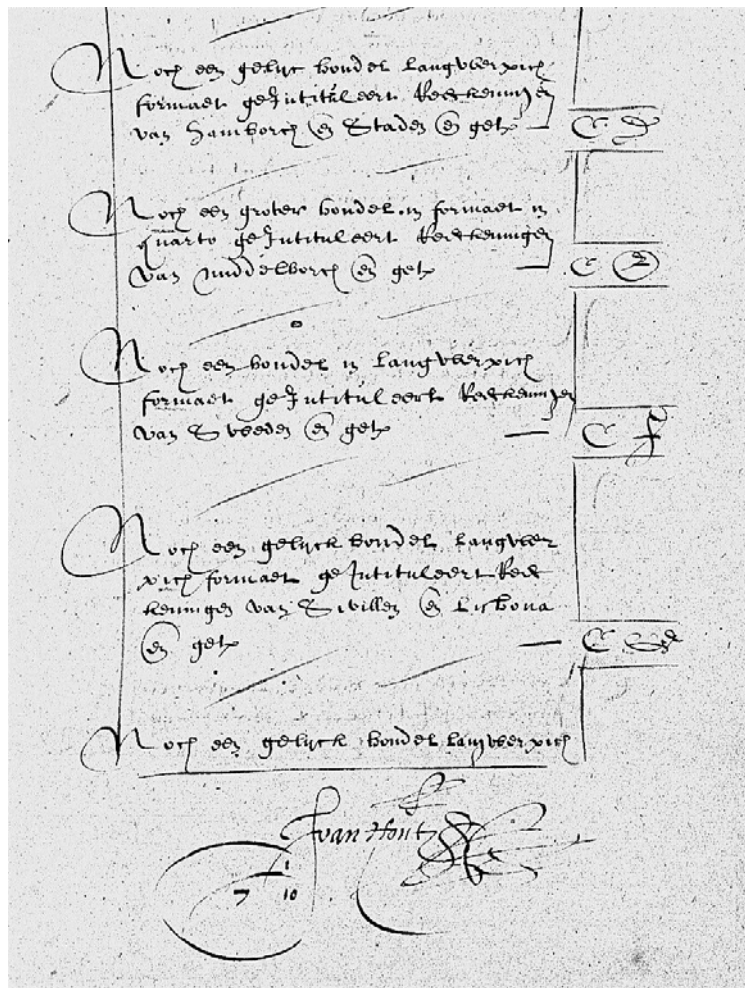 Noch een gelijc bondel langwerpich
formaet geJntituleert Reeckeninge
van Hamborch en Staden en get. C D
Noch een groter bondel in formaet in
quarto geJntituleert Reeckeningen
van middelborch en get. C E
Noch een bondel in langwerpich
formaet geJntituleert Reeckeningen
van Sweden en get. C F
Noch een gelijck bondel langwer
pich formaet geJntituleert Reec
keningen van Sivillen en Lisbona
en get. C
Noch een gelijck bondel langwerpich
J van Hout
1
7 10